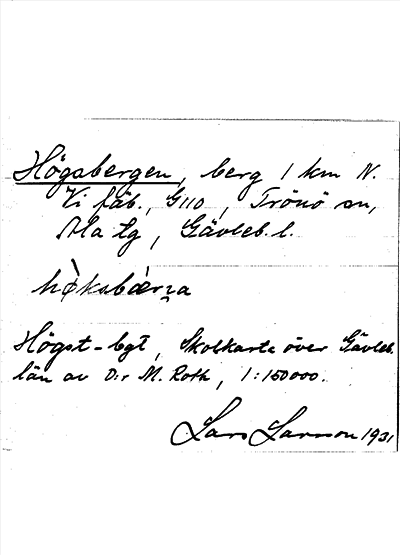 Högsbergen, berg 1 km N.
Vi fäb., G110, Trönö sn,
Ala tg, Gävleb. l.
hø̀ksbæ̀rn̥a
Högst-bgt, Skolkarta över Gävleb.
län av D:r M. Roth, 1:150000.
Lars Larsson 1931